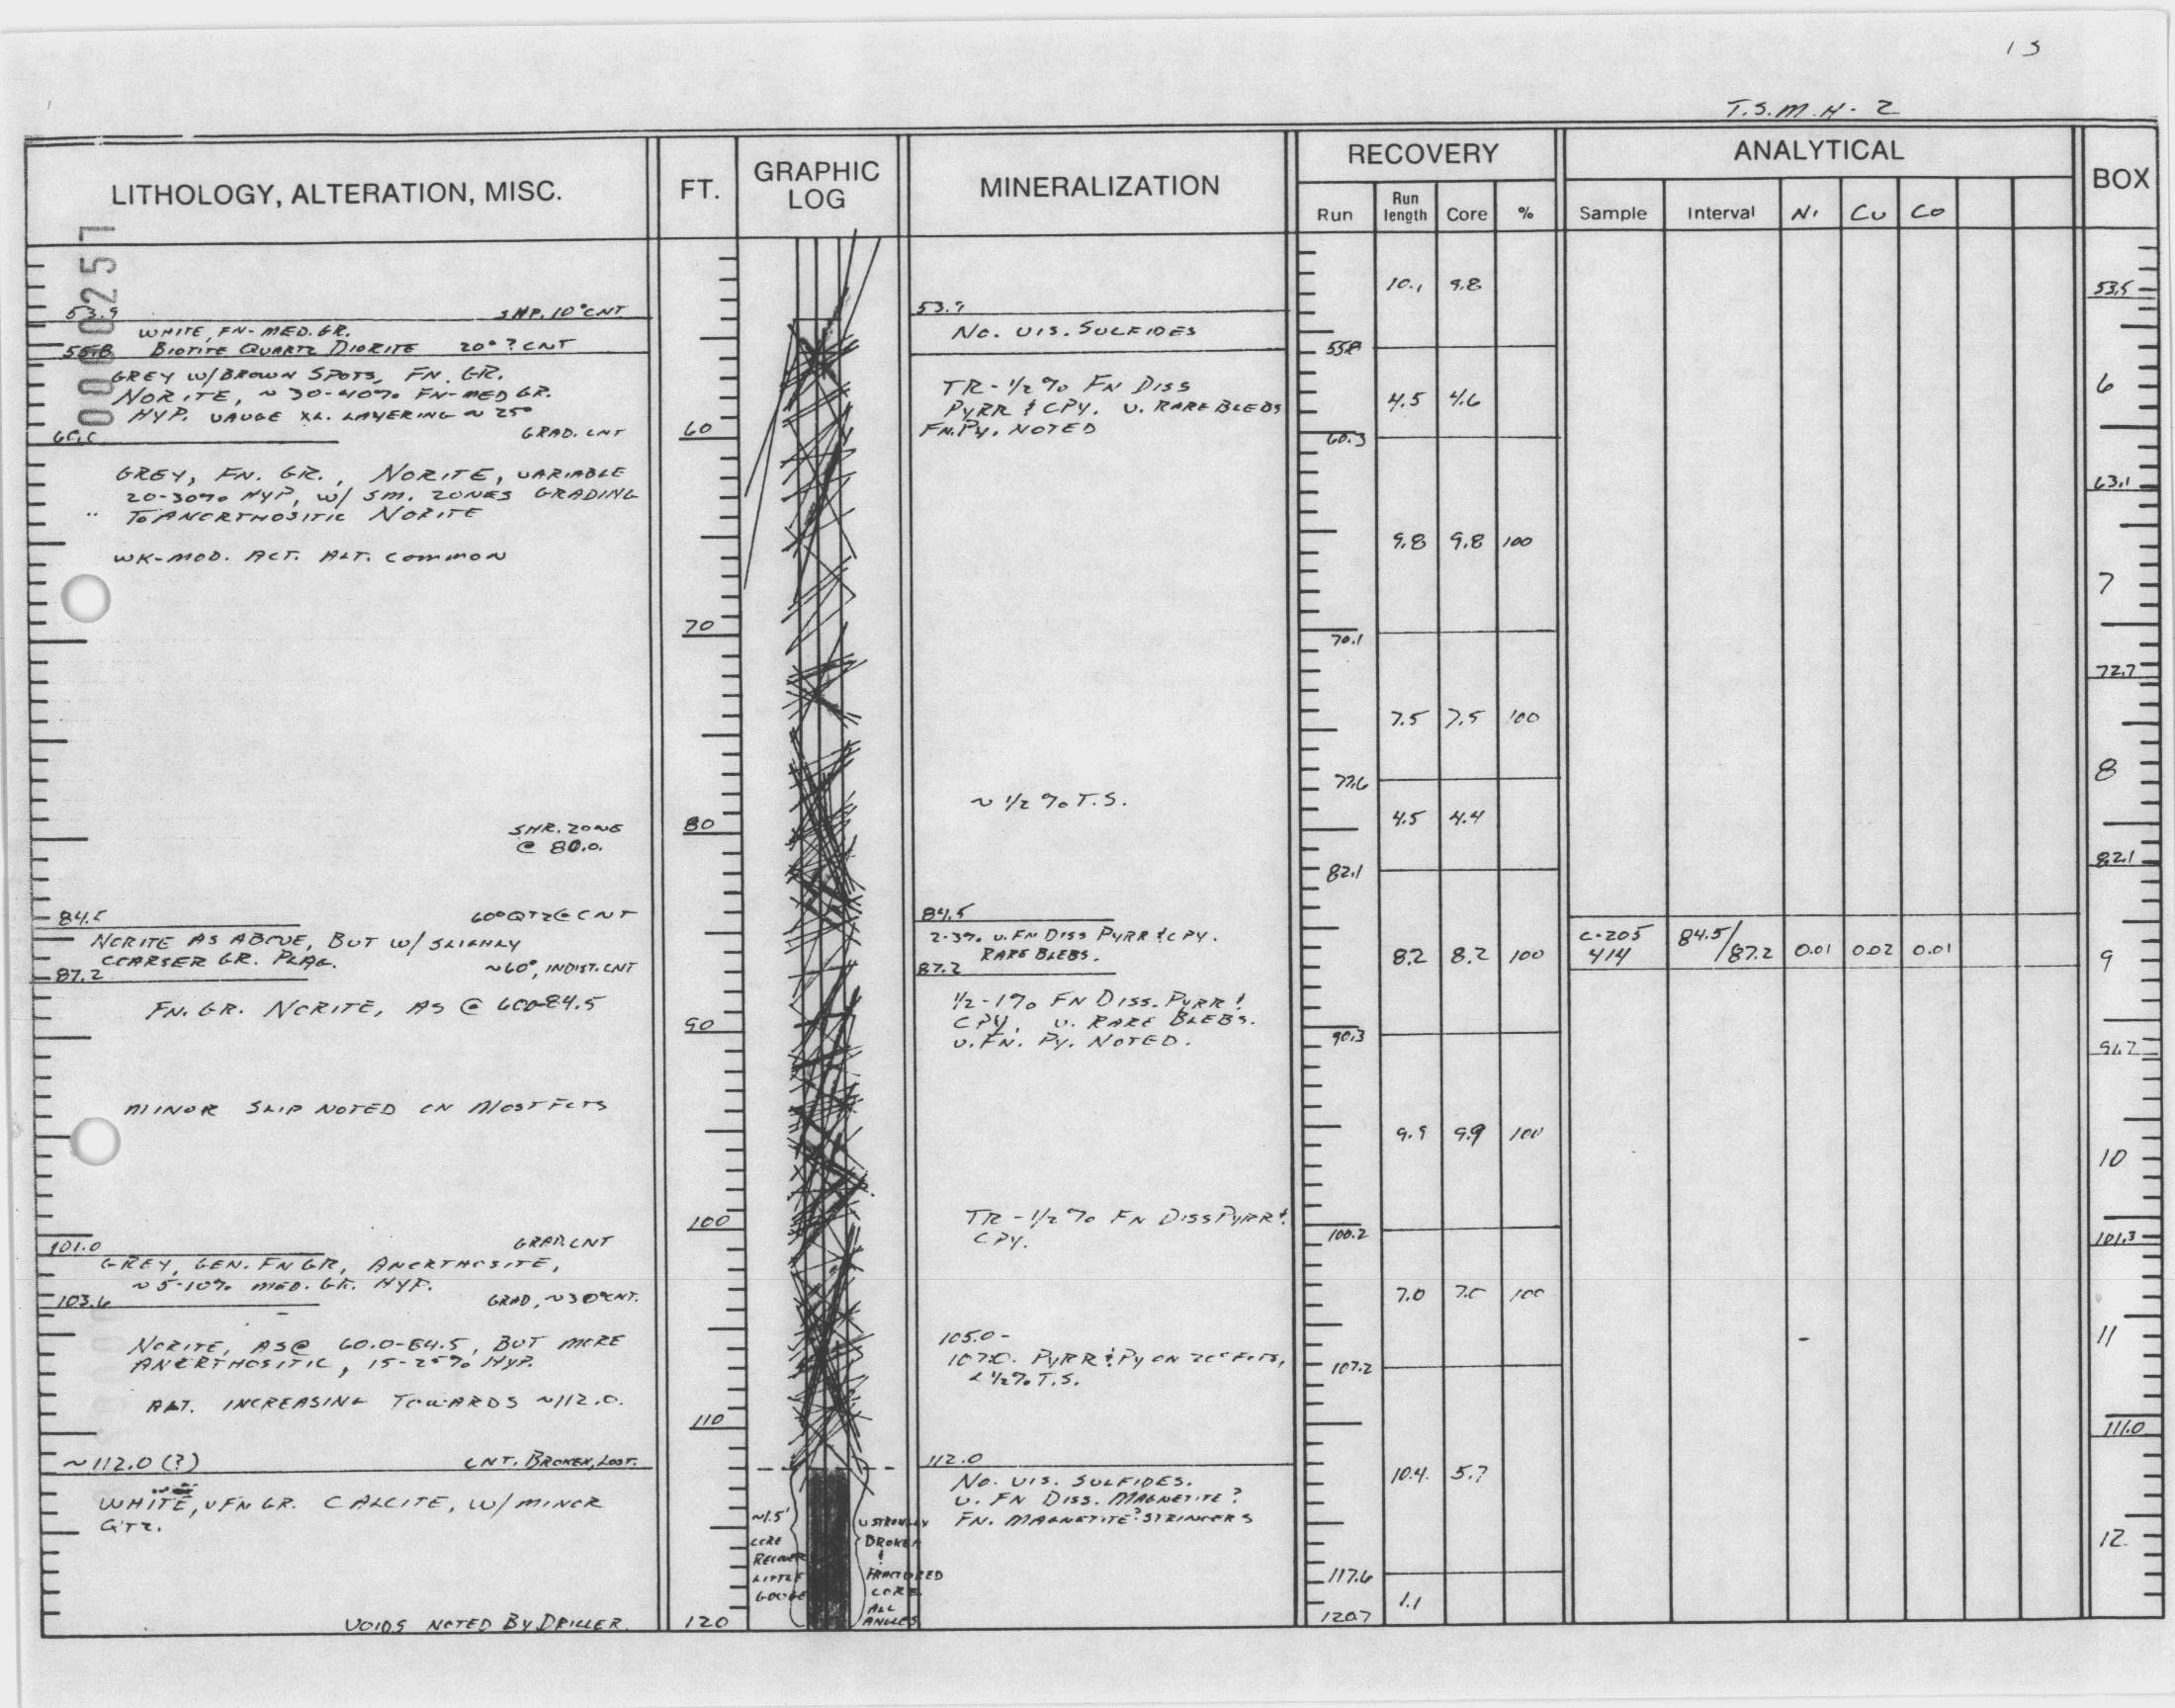 13
T.S.M.H-2
LITHOLOGY, ALTERATION, MISC.
FT.
GRAPHIC
LOG
MINERALIZATION
RECOVERY
Run
Run
length
Core
%
ANALYTICAL
Sample
Interval
Ni
Cu
Co
BOX
0000257
53.9 SHP. 10° CNT
WHITE, FN-MED. GR.
55.8 BIOTITE QUARTZ DIORITE 20°? CNT
GREY W/ BROWN SPOTS, FN. GR.
NORITE, ~30-40% FN-MED GR.
HYP. VAUGE XL. LAYERING ~25°
60.0 GRAD. CNT
GREY, FN. GR., NORITE, VARIABLE
20-30% HYP, W/ SM. ZONES GRADING
TO ANORTHOSITIC NORITE
WK-MOD. ACT. ALT. COMMON
SHR. ZONE
@ 80.0.
84.5 60° QTZ @ CNT
NORITE AS ABOVE, BUT W/ SLIGHLY
COARSER GR. PLAG.
87.2 ~60°, INDIST. CNT
FN. GR. NORITE, AS @ 60.0-84.5
MINOR SLIP NOTED ON MOST FCTS
101.0 GRAD. CNT
GREY, GEN. FN GR, ANORTHOSITE,
~5-10% MED. GR. HYP.
103.6 GRAD, ~30° CNT.
NORITE, AS @ 60.0-84.5, BUT MORE
ANORTHOSITIC, 15-25% HYP.
ALT. INCREASING TOWARDS ~112.0.
~112.0 (?) CNT. BROKEN, LOST.
WHITE, V FN GR. CALCITE, W/ MINOR
QTZ.
VOIDS NOTED BY DRILLER.
60
70
80
90
100
110
120
~1.5'
CORE
RECOVER
LITTLE
GOUGE
V STRONGLY
BROKEN
&
FRACTURED
CORE
ALL
ANGLES
53.9
NO. VIS. SULFIDES
TR-1/2% FN DISS
PYRR & CPY. V. RARE BLEBS
FN. PY. NOTED
~1/2% T.S.
84.5
2-3% V. FN DISS PYRR & CPY.
RARE BLEBS.
87.2
1/2-1% FN DISS. PYRR &
CPY, V. RARE BLEBS.
V. FN. PY. NOTED.
TR-1/2% FN DISS PYRR &
CPY.
105.0-
107.0. PYRR & PY ON 20° FCTS,
<1/2% T.S.
112.0
NO. VIS. SULFIDES.
V. FN DISS. MAGNETITE?
FN. MAGNETITE? STRINGERS
10.1 9.8
55.8
4.5 4.6
60.3
9.8 9.8 100
70.1
7.5 7.5 100
77.6
4.5 4.4
82.1
8.2 8.2 100
90.3
9.9 9.9 100
100.2
7.0 7.0 100
107.2
10.4 5.7
117.6
1.1
120.7
C-205
414
84.5/
87.2
0.01 0.02 0.01
53.5
6
63.1
7
72.7
8
82.1
9
91.7
10
101.3
11
111.0
12